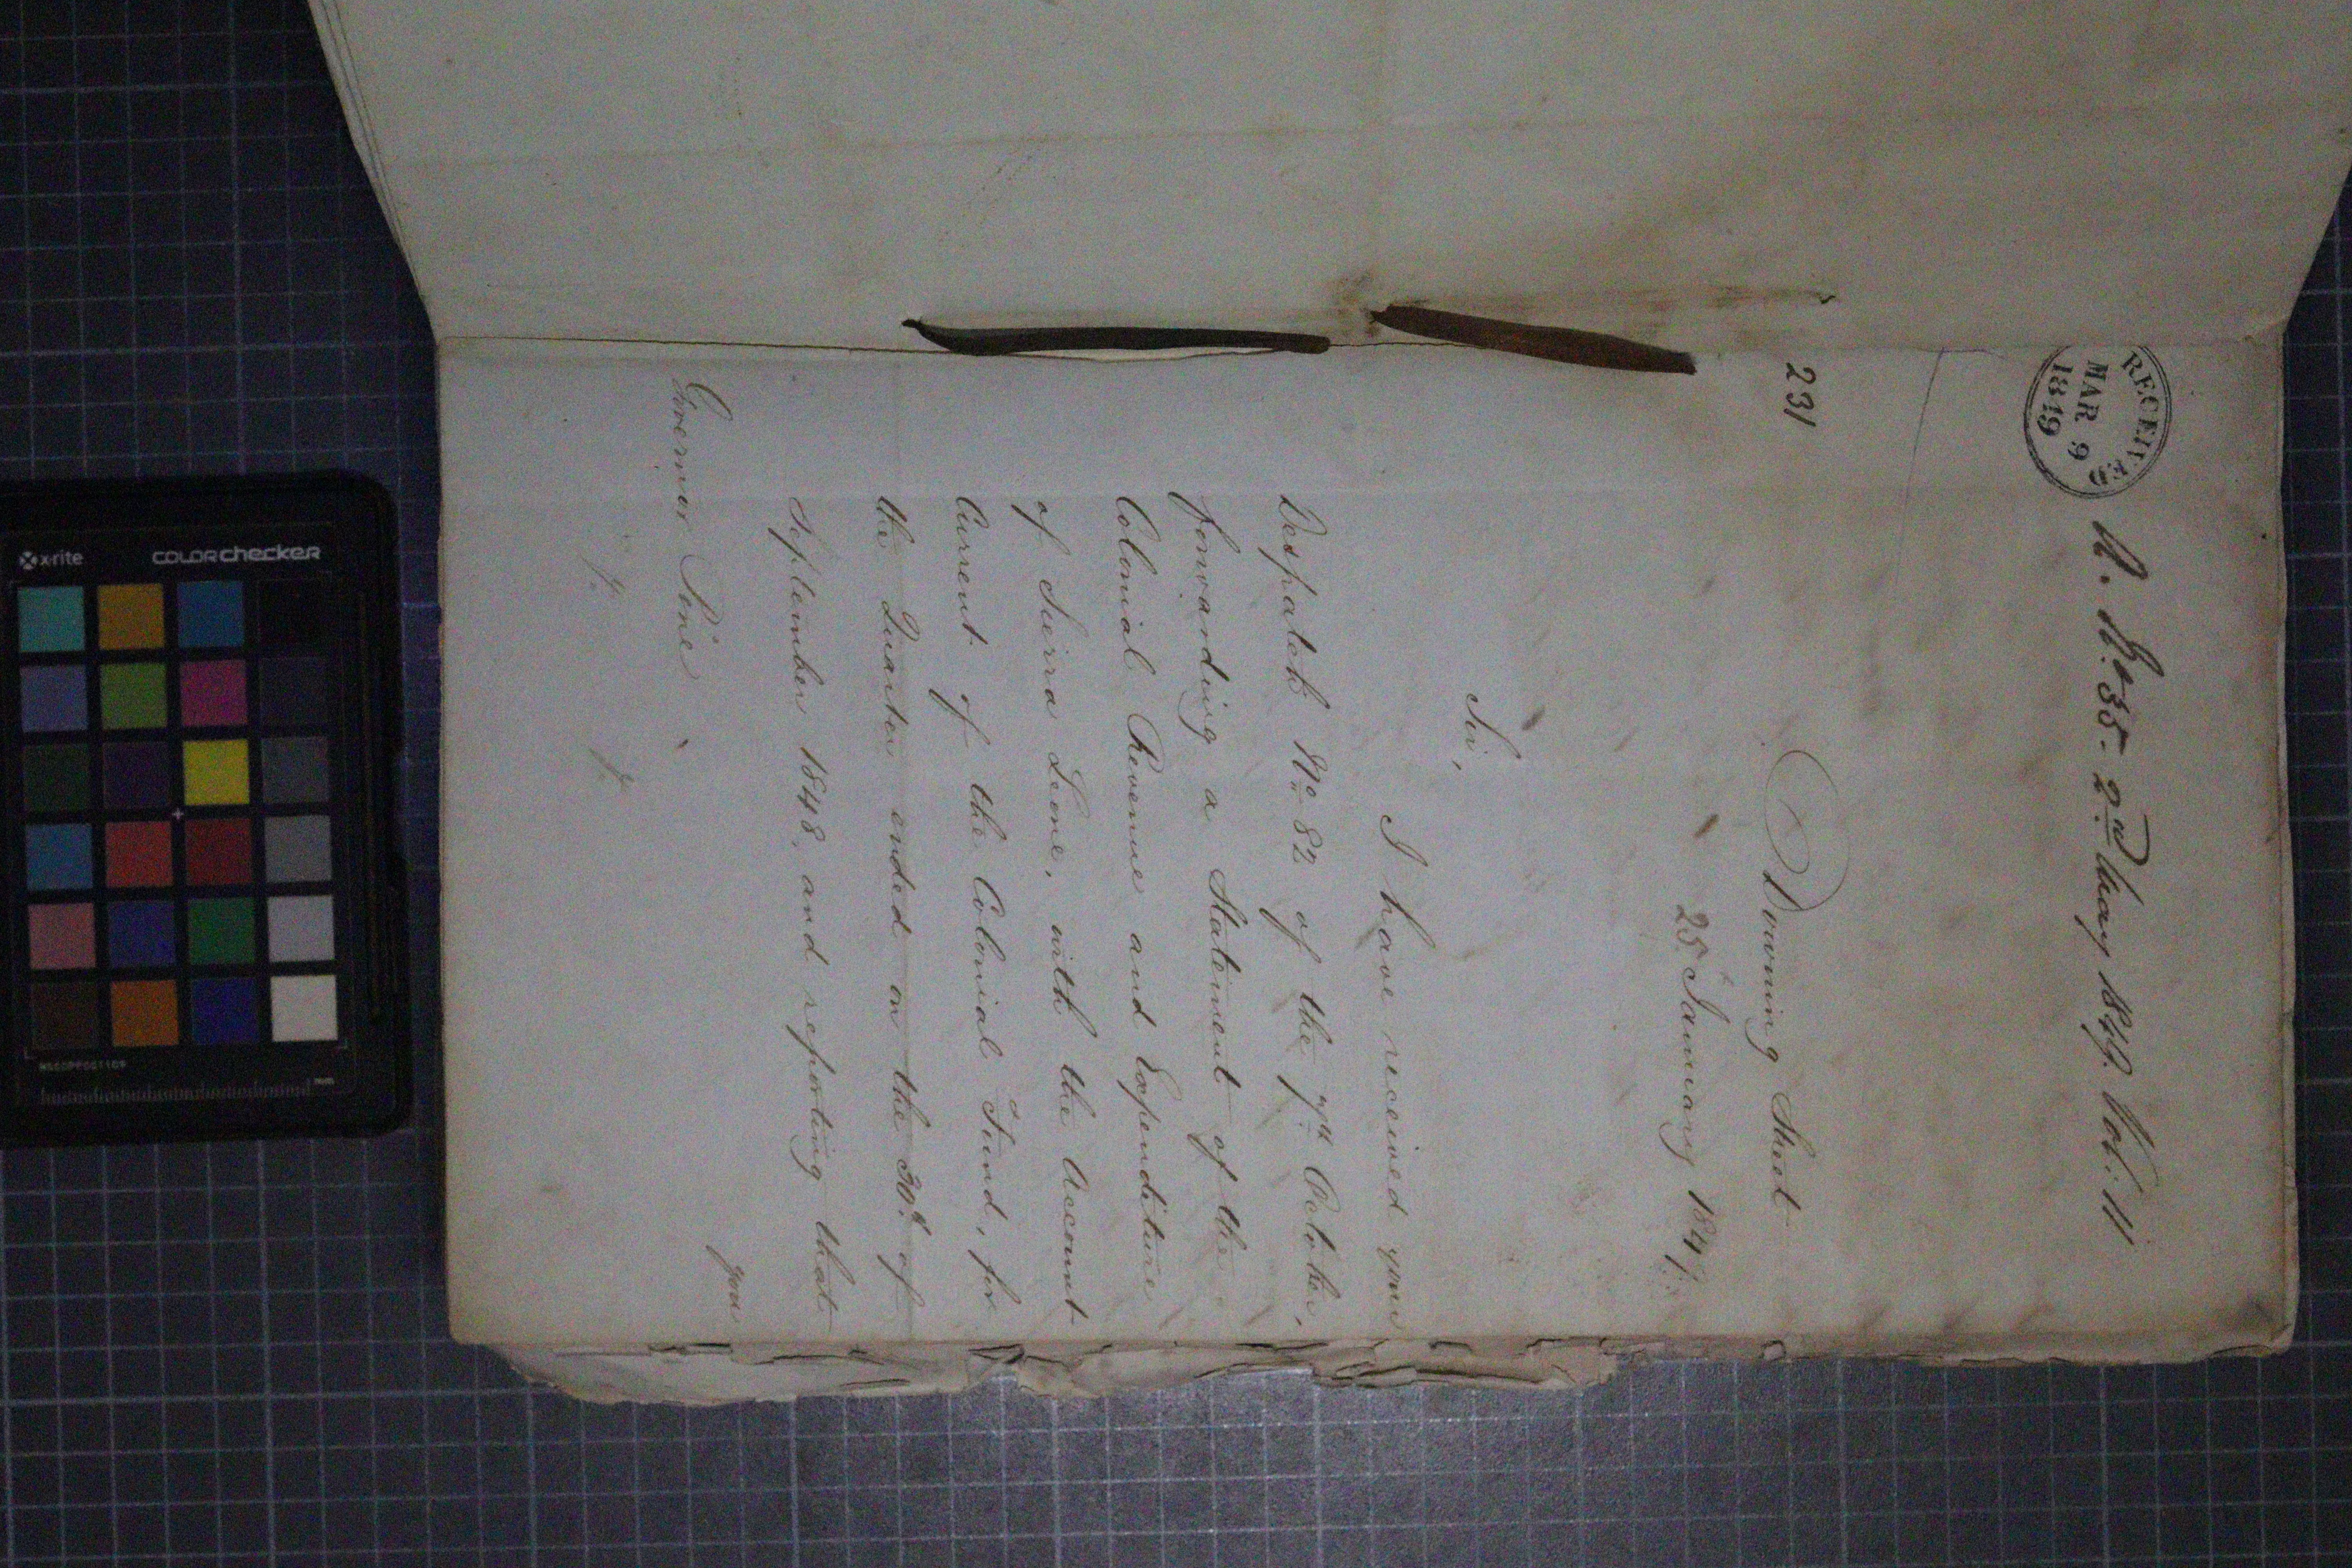 RECEIVED
MAR 9
1849
A. No. 35. 2nd May 1849. Vol. 11
231
Downing Street
25 January 1849.
Sir,
I have received your
Despatch No. 82 of the 7th October,
forwarding a Statement of the
Colonial Revenue and Expenditure
of Sierra Leone, with the Account
Current of the Colonial Fund, for
the Quarter ended on the 30th of
September 1848, and reporting that
you
Governor Pine
x-rite
COLORchecker
mm